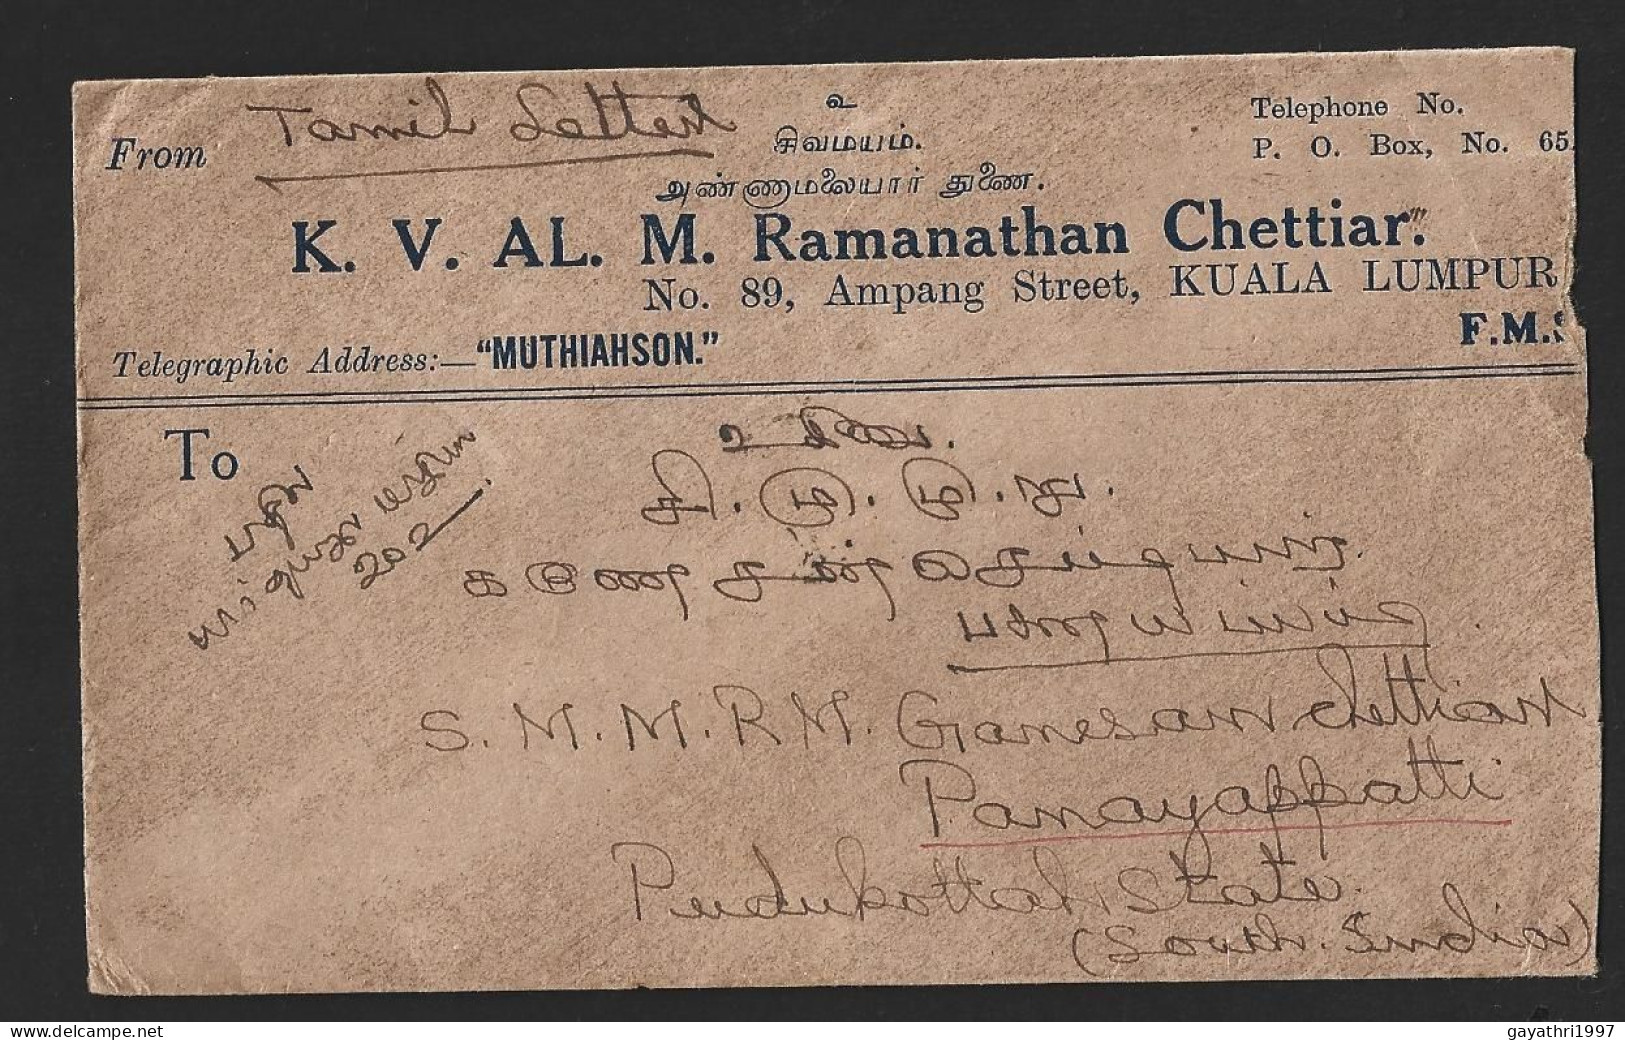 From
Tamil Letter
உ
சிவமயம்.
அண்ணாமலையார் துணை.
Telephone No.
P. O. Box, No. 65
K. V. AL. M. Ramanathan Chettiar.
No. 89, Ampang Street, KUALA LUMPUR
F.M.S
Telegraphic Address:— "MUTHIAHSON."
To
சி. மு. மு.
கணேசன் செட்டியார்.
பனையப்பட்டி.
S. M. M. R M. Ganesan Chettiar
Panayappatti
Pudukottah State
(South. India)
delcampe.net
gayathri1997